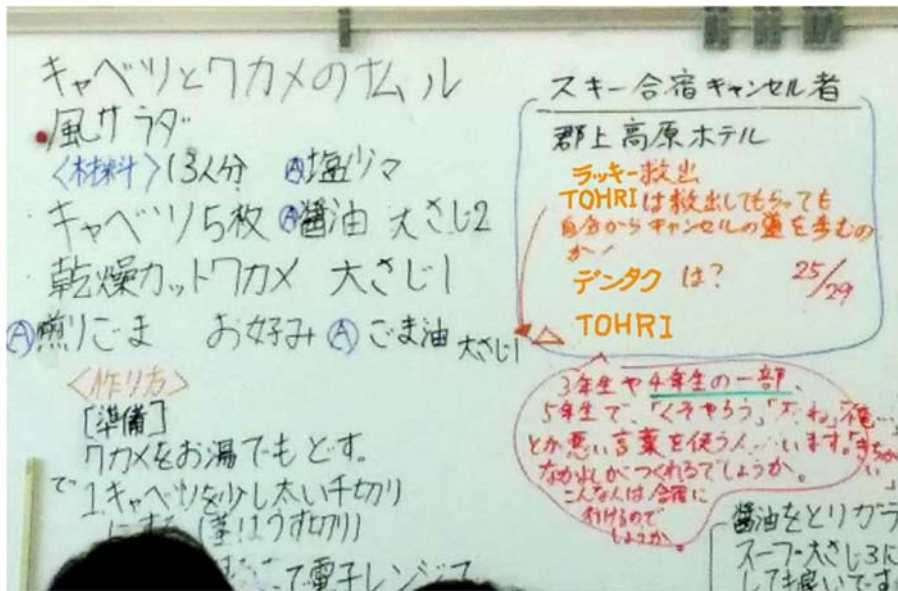 キャベツとワカメのナムル
風サラダ
<材料>13人分 Ⓐ塩少々
キャベツ5枚 Ⓐ醤油 大さじ2
乾燥カットワカメ 大さじ1
Ⓐ煎りごま お好み Ⓐごま油 大さじ1
<作り方>
[準備]
ワカメをお湯でもどす。
で
1.キャベツを少し太い千切り
にする(茎はうす切り)
で電子レンジで
スキー合宿キャンセル者
郡上高原ホテル
ラッキー救出
TOHRIは救出してもらっても
自分からキャンセルの道を歩むの
か
デンタク は? 25/29
TOHRI
3年生や4年生の一部、
5年生で、「くそやろう」
とか悪い言葉を使う人 います。
なかよしがつくれるでしょうか。
こんな人は合宿に
行けるので
しょうか。
醤油をとりガラ
スープ大さじ3に
しても良いです